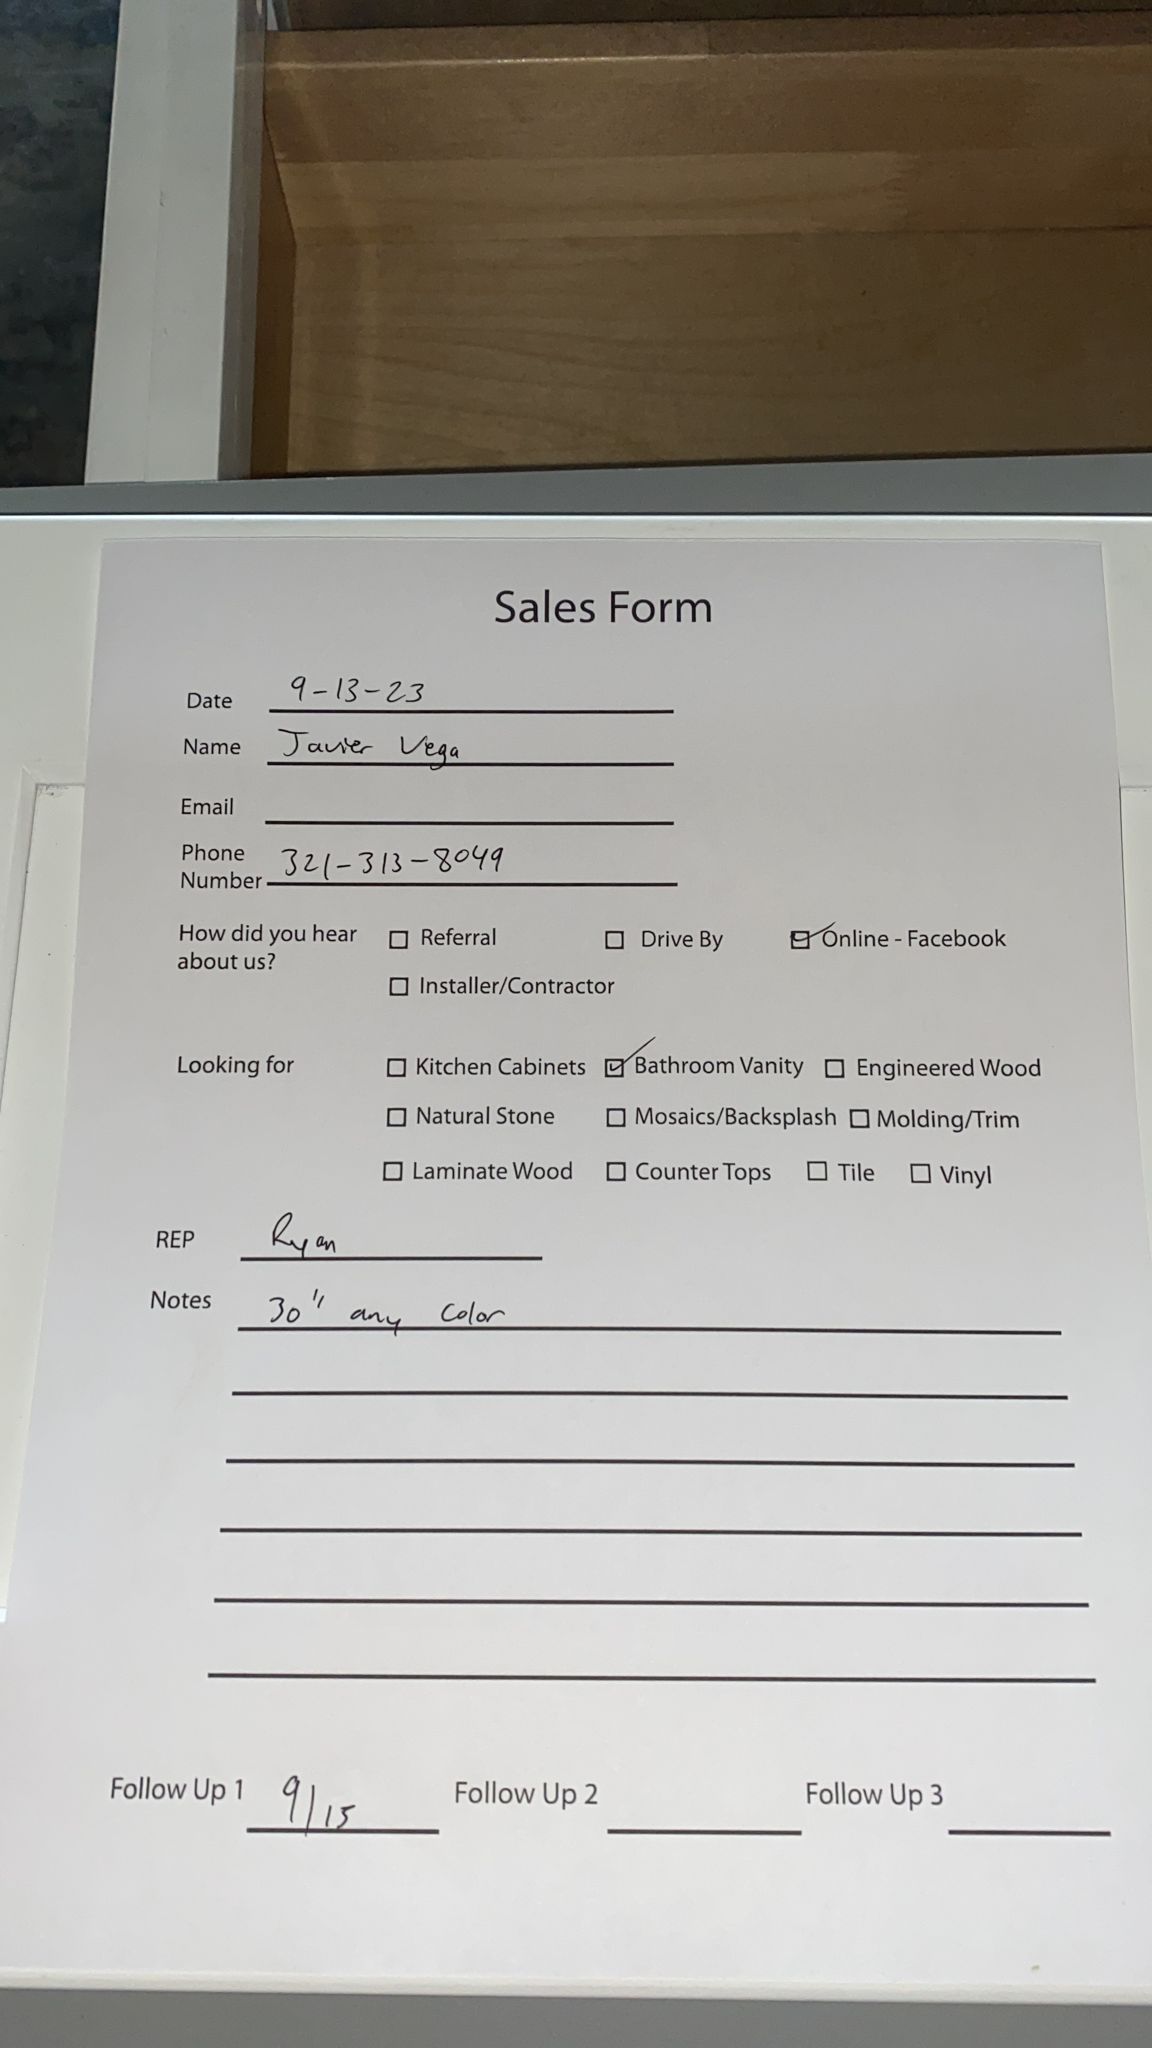 Sales Form
Date 9-13-23
Name Javier Vega
Email
Phone
Number 321-313-8049
How did you hear ☐ Referral ☐ Drive By ☑ Online - Facebook
about us?
☐ Installer/Contractor
Looking for ☐ Kitchen Cabinets ☑ Bathroom Vanity ☐ Engineered Wood
☐ Natural Stone ☐ Mosaics/Backsplash ☐ Molding/Trim
☐ Laminate Wood ☐ Counter Tops ☐ Tile ☐ Vinyl
REP Ryan
Notes 30" any color
Follow Up 1 9/15 Follow Up 2 Follow Up 3